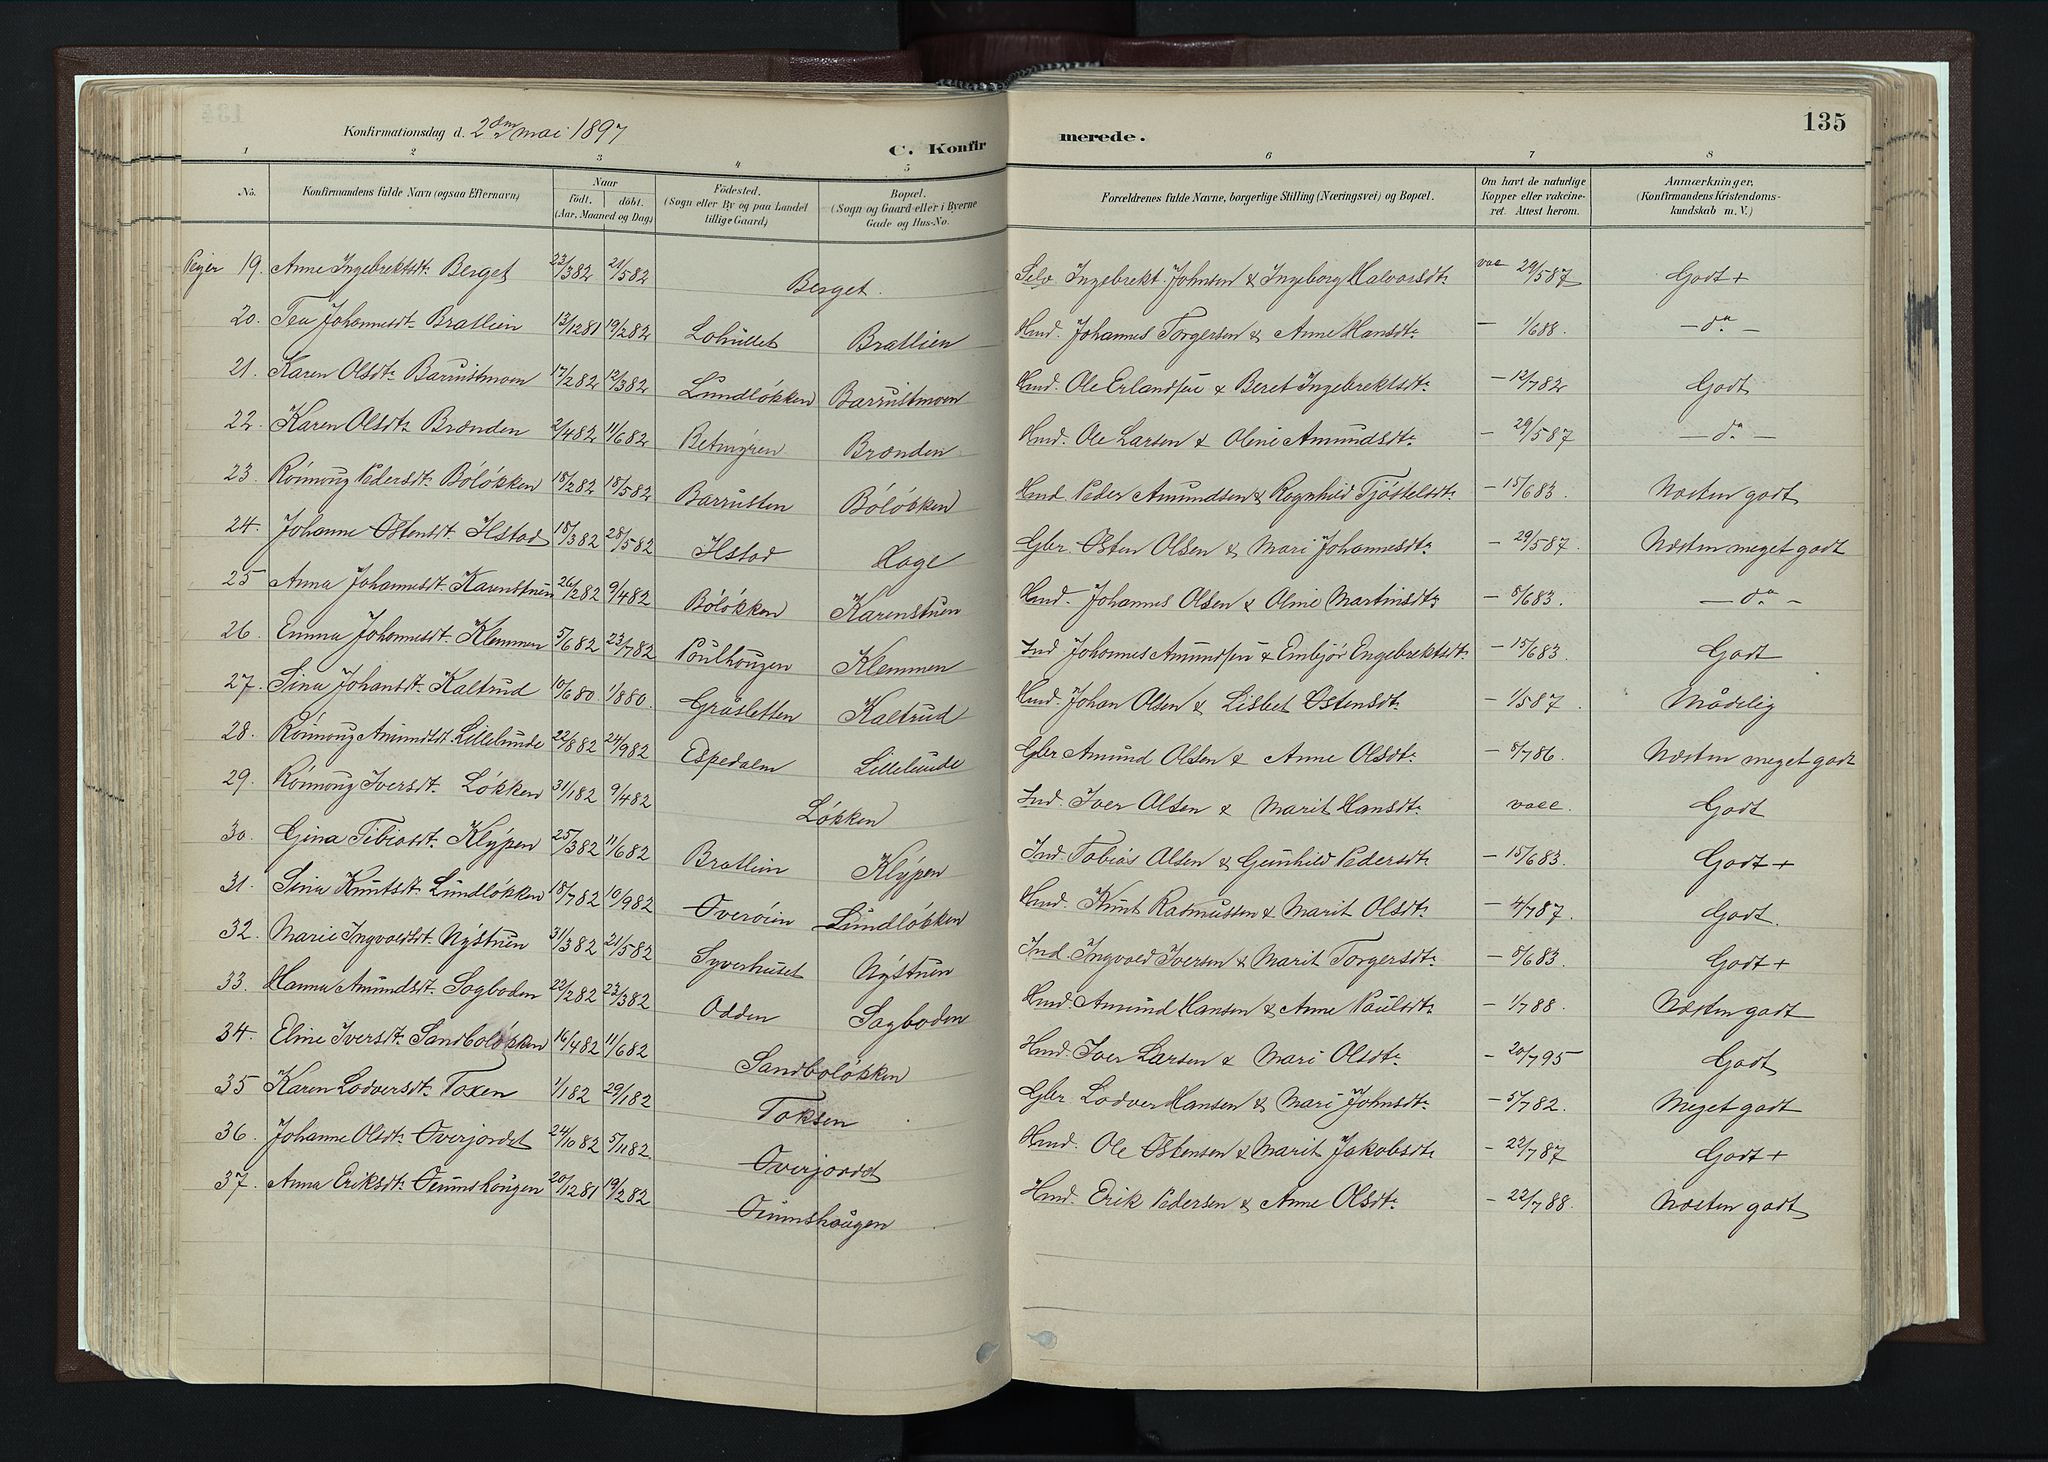 135
Konfirmationsdag d. 2den mai 1897
C. Konfirmerede.
1 2 3 4 5 6 7 8
No. Konfirmandens fulde Navn (ogsaa Efternavn) Naar födt. döbt. (Aar, Maaned og Dag) Födested. (Sogn eller By og paa Landet tillige Gaard) Bopæl. (Sogn og Gaard eller i Byerne Gade og Hus-No. Forældrenes fulde Navne, borgerlige Stilling (Næringsvei) og Bopæl. Om havt de naturlige Kopper eller vakcineret. Attest herom. Anmærkninger, (Konfirmandens Kristendomskundskab m. V.)
Piger 19. Anne Ingebrektsdtr Berget 23/3 82 21/5 82 Berget. Selv Ingebrekt Johnsen & Ingeborg Halvorsdtr vac 29/5 87 Godt +
20. Tea Johannesdtr Bratlien 13/12 81 19/2 82 Lohullet Bratlien Hmd. Johannes Torgersen & Anne Hansdtr — 1/6 88. — do —
21. Karen Olsdtr Barrustmoen 17/2 82 12/3 82 Lundløkken Barrustmoen Hmd. Ole Erlandsen & Beret Ingebrektsdtr — 12/7 82 Godt
22. Karen Olsdtr Brænden 2/4 82 11/6 82 Betmyren Brænden Hmd. Ole Larsen & Oline Amundsdtr — 29/5 87 — do —
23. Rönnoug Pedersdtr Böløkken 18/2 82 18/5 82 Barrusten Böløkken Hmd. Peder Amundsen & Rognhild Tjöstelsdtr — 15/6 83. Næsten godt
24. Johanne Østensdtr Ilstad 18/3 82 28/5 82 Ilstad Hage Gbr. Østen Olsen & Mari Johannesdtr — 29/5 87. Næsten meget godt
25 Anna Johannesdtr Karenstuen 26/2 82 9/4 82 Böløkken Karenstuen Hmd. Johannes Olsen & Oline Martinsdtr — 8/6 83. — do —
26. Emma Johannesdtr Klemmen 5/6 82 23/7 82 Poulhougen Klemmen Ind Johannes Amundsen & Embjör Engebrektsdtr — 15/6 83. Godt
27. Sina Johansdtr Kaltrud 10/6 80 1/8 80. Græsletten Kaltrud Hmd. Johan Olsen & Lisbet Østensdtr — 1/5 87. Mådelig
28. Rönnoug Amundsdt. Lillelunde 22/8 82 24/9 82 Espedalen Lillelunde Gbr Amund Olsen & Anne Olsdtr — 8/7 86. Næsten meget godt
29. Rönnoug Iversdtr Løkken 31/1 82 9/4 82 Løkken Ind. Iver Olsen & Marit Hansdtr vacc. Godt
30. Gina Tobiasdtr Klÿpen 25/3 82 11/6 82 Bratlien Klÿpen Ind. Tobias Olsen & Gunhild Pedersdtr — 15/6 83. Godt +
31. Sina Knutsdtr Lundløkken 18/7 82 10/9 82 Overöien Lundløkken Hmd. Knut Rasmussen & Marit Olsdtr — 4/7 87. Godt.
32. Marie Ingvoldsdt. Nÿstuen 31/3 82 21/5 82 Syverhuset Nÿstuen Ind. Ingvold Iversen & Marit Torgersdtr — 8/6 83. Godt +
33. Hanna Amundsdt. Sagboden 22/2 82 23/3 82 Odden Sagboden Hmd. Amund Hansen & Anne Poulsdtr — 1/7 88. Næsten godt
34. Eline Iversdtr Sandboløkken 16/4 82 11/6 82 Sandboløkken Hmd. Iver Larsen & Mari Olsdtr — 20/7 95 Godt
35 Karen Lodversdtr Toxen 1/1 82 29/1 82 Toksen Gbr. Lodver Hansen & Mari Johnsdtr — 5/7 82. Meget godt
36. Johanne Olsdtr Overjordet 24/10 82 5/11 82. Overjordet Hmd. Ole Østensen & Marit Jakobsdtr — 22/7 87 Godt +
37. Anna Eriksdtr 20/12 81 19/2 82 Hmd. Erik Pedersen & Anne Olsdtr — 22/7 88. Næsten godt